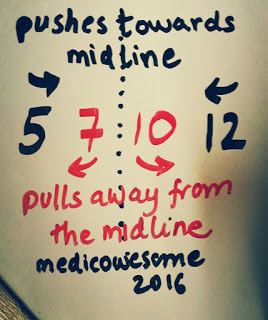 pushes towards
midline
5 7 10 12
pulls away from
the midline
medicowesome
2016